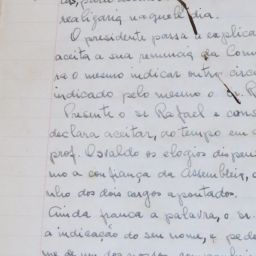 realizaria naquele dia.
O presidente passa a explica
aceita a sua renuncia da Com
ra o mesmo indicar outro circ
indicado pelo mesmo o sr. R
Presente o sr Rafael e cons
declara aceitar, ao tempo em
prof. Osvaldo os elogios dispen
mo a confiança da Assembleia,
nho dos dois cargos apontados.
Ainda franca a palavra, o sr.
a indicação do seu nome, e pede